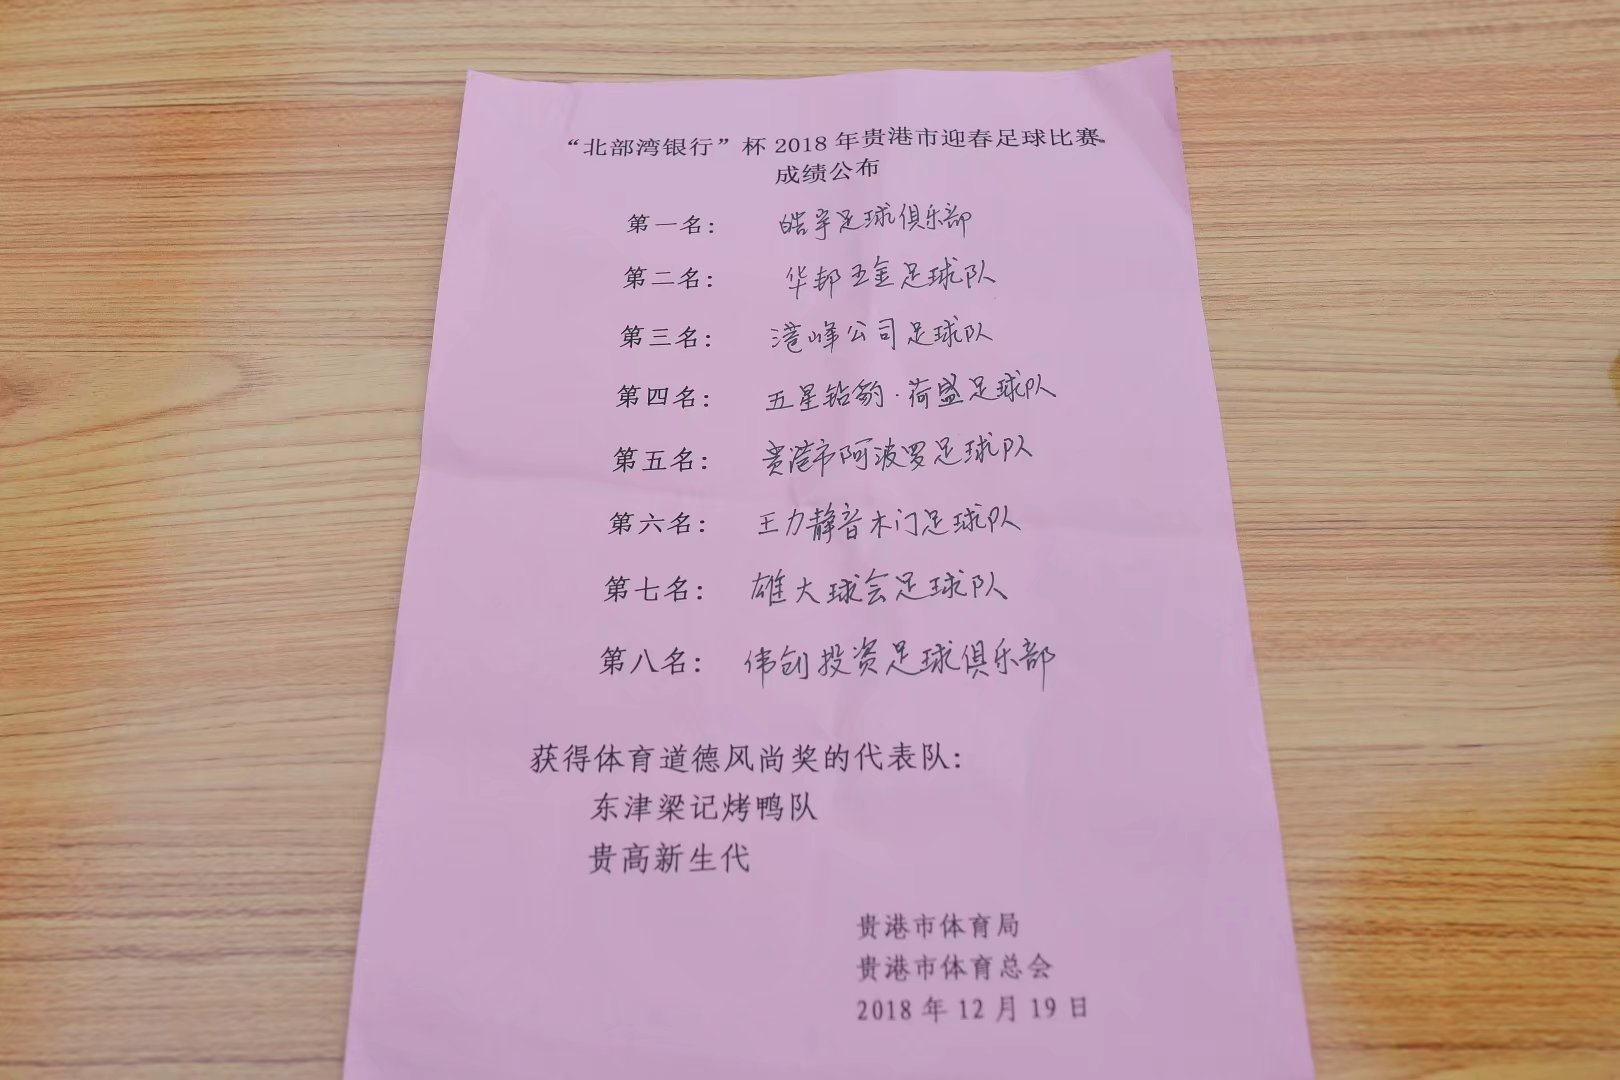 “北部湾银行”杯 2018 年贵港市迎春足球比赛
成绩公布
第一名： 皓宇足球俱乐部
第二名： 华邦五金足球队
第三名： 港峰公司足球队
第四名： 五星钻豹·荷盛足球队
第五名： 贵港市阿波罗足球队
第六名： 王力静音木门足球队
第七名： 雄大球会足球队
第八名： 伟创投资足球俱乐部
获得体育道德风尚奖的代表队：
东津梁记烤鸭队
贵高新生代
贵港市体育局
贵港市体育总会
2018 年 12 月 19 日